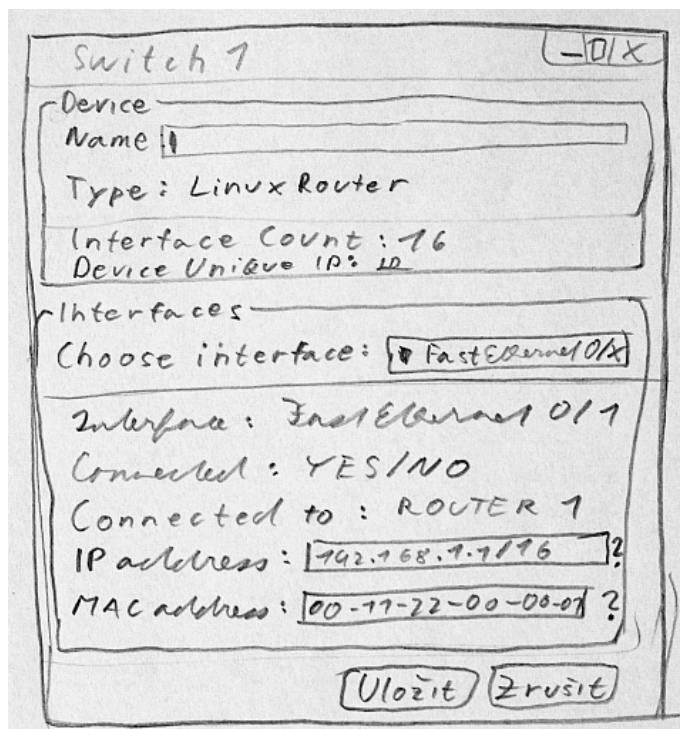 Switch 1 _ □ X
Device
Name
Type: Linux Router
Interface Count: 16
Device Unique ID: ID
Interfaces
Choose interface: FastEthernet 0/X
Interface: FastEthernet 0/1
Connected: YES/NO
Connected to: ROUTER 1
IP address: 192.168.1.1/16 ?
MAC address: 00-11-22-00-00-01 ?
Uložit Zrušit